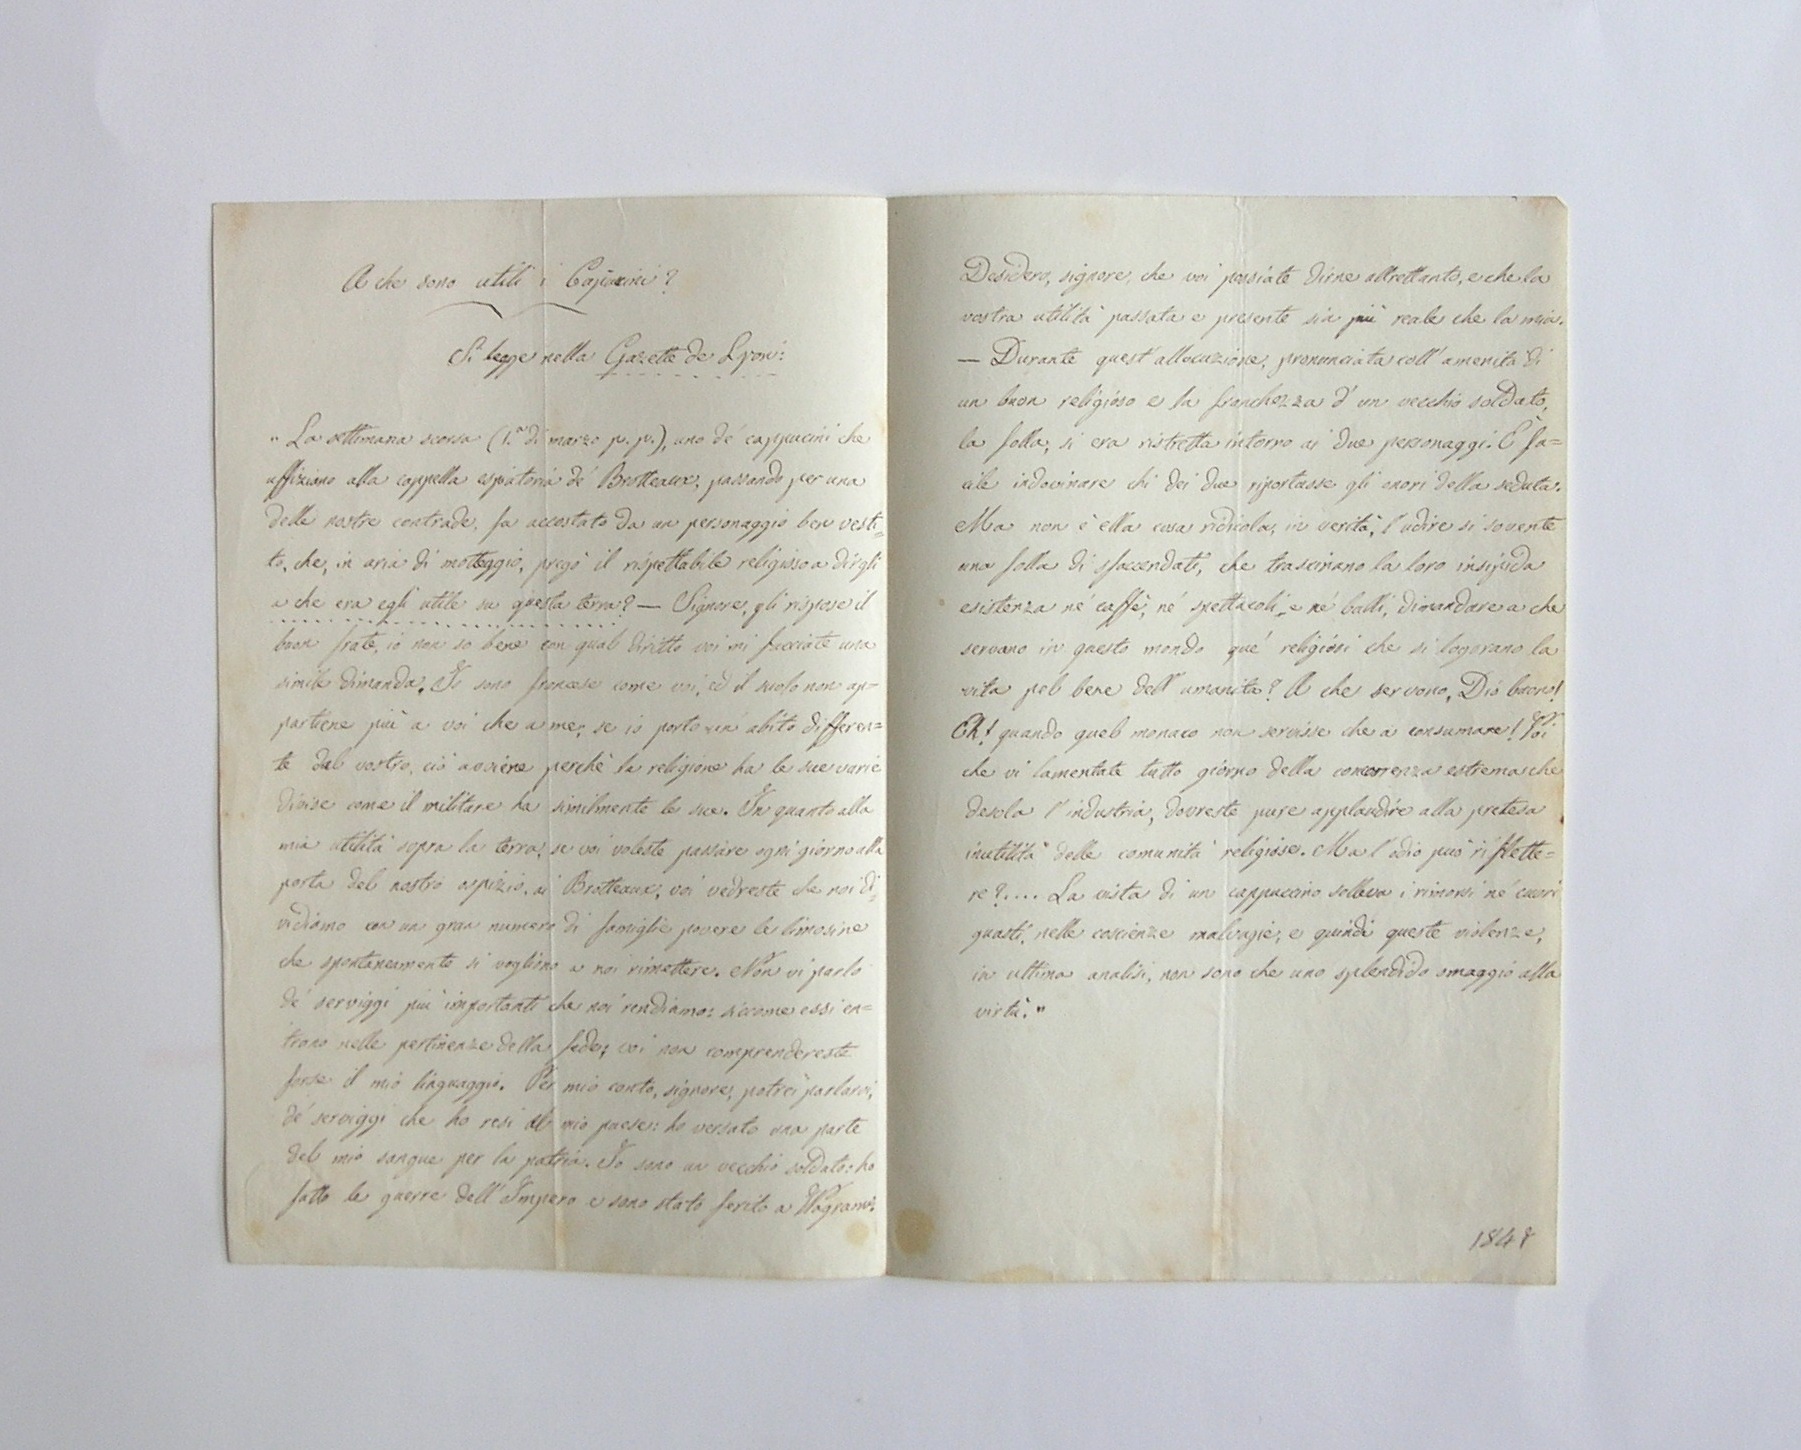 A che sono utili i Capucini?
Si legge nella Gazette de Lyon:
" La settimana scorsa (1.ª di marzo p. p.), uno de' cappucini che
uffiziano alla cappella espiatoria de' Brotteaux, passando per una
delle nostre contrade, fu accostato da un personaggio ben vesti=
to, che, in aria di motteggio, pregò il rispettabile religioso a dirgli
a che era egli utile su questa terra? — Signore, gli rispose il
buon frate, io non so bene con qual diritto voi mi facciate una
simile dimanda. Io sono francese come voi, ed il suolo non ap=
partiene più a voi che a me; se io porto un abito differen=
te dal vostro, ciò avviene perchè la religione ha le sue varie
divise come il militare ha similmente le sue. In quanto alla
mia utilità sopra la terra, se voi voleste passare ogni giorno alla
porta del nostro ospizio, ai Brotteaux, voi vedreste che noi di=
vidiamo con un gran numero di famiglie povere le limosine
che spontaneamente si vogliono a noi rimettere. Non vi parlo
de' serviggi più importanti che noi rendiamo: siccome essi en=
trano nelle pertinenze della fede, voi non comprendereste
forse il mio linguaggio. Per mio conto, signore, potrei parlarvi,
de' serviggi che ho resi al mio paese: ho versato una parte
del mio sangue per la patria. Io sono un vecchio soldato: ho
fatto le guerre dell'Impero e sono stato ferito a Wagram:
Desidero, signore, che voi possiate dirne altrettanto, e che la
vostra utilità passata e presente sia più reale che la mia.
— Durante quest'allocuzione, pronunciata coll'amenità di
un buon religioso e la franchezza d'un vecchio soldato,
la folla, si era ristretta intorno ai due personaggi. È fa=
cile indovinare chi dei due riportasse gli onori della seduta.
Ma non è ella cosa ridicola, in verità, l'udire sì sovente
una folla di sfaccendati, che trascinano la loro insipida
esistenza ne' caffè, ne' spettacoli, e ne' balli, dimandare a che
servano in questo mondo que' religiosi che si logorano la
vita pel bene dell'umanità? A che servono, Dio buono!
Eh! quando quel monaco non servisse che a consumare! Voi
che vi lamentate tutto giorno della concorrenza estrema che
desola l'industria, dovreste pure applaudire alla pretesa
inutilità delle comunità religiose. Ma l'odio può riflette=
re?.... La vista di un cappuccino solleva i rimorsi ne' cuori
guasti, nelle coscienze malvagie, e quindi queste violenze,
in ultima analisi, non sono che uno splendido omaggio alla
virtù."